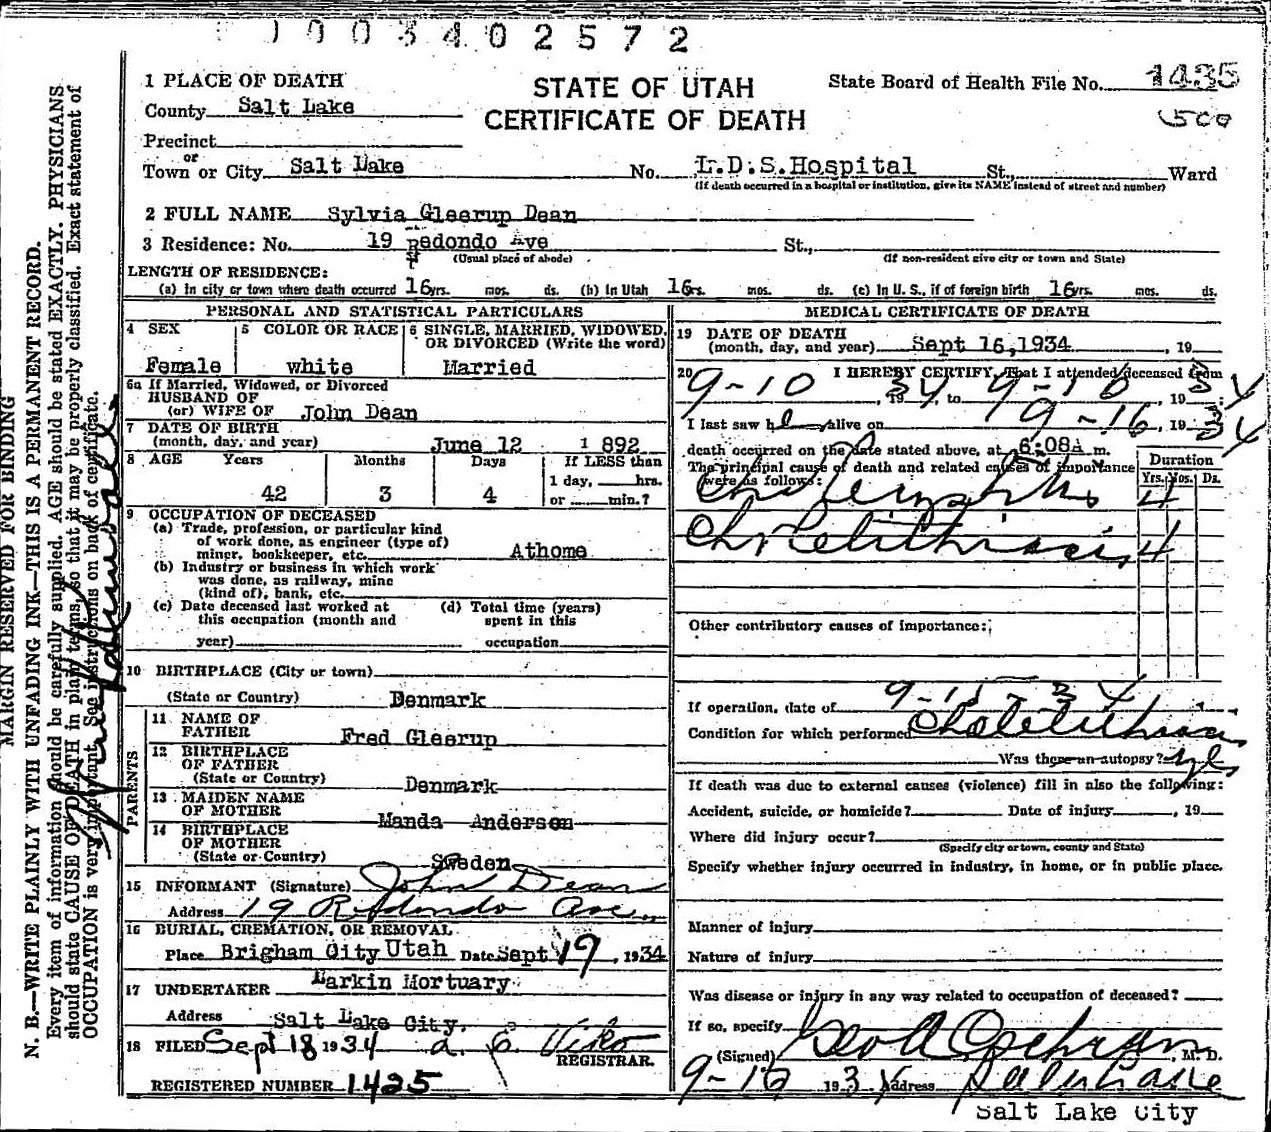 1003402572
1 PLACE OF DEATH
STATE OF UTAH
CERTIFICATE OF DEATH
State Board of Health File No. 1435
500
County Salt Lake
Precinct
or
Town or City Salt Lake No. L.D.S.Hospital St., Ward
(If death occurred in a hospital or institution, give its NAME instead of street and number)
2 FULL NAME Sylvia Gleerup Dean
3 Residence: No. 19 Redondo Ave St.,
(Usual place of abode) (If non-resident give city or town and State)
LENGTH OF RESIDENCE:
(a) In city or town where death occurred 16 yrs. mos. ds. (b) In Utah 16 rs. mos. ds. (c) In U. S., if of foreign birth 16 yrs. mos. ds.
PERSONAL AND STATISTICAL PARTICULARS
4 SEX 5 COLOR OR RACE 6 SINGLE, MARRIED, WIDOWED, OR DIVORCED (Write the word)
Female white Married
6a If Married, Widowed, or Divorced
HUSBAND OF
(or) WIFE OF John Dean
7 DATE OF BIRTH
(month, day, and year) June 12 1892
8 AGE Years Months Days If LESS than
1 day, hrs.
42 3 4 or min.?
9 OCCUPATION OF DECEASED
(a) Trade, profession, or particular kind
of work done, as engineer (type of)
miner, bookkeeper, etc. Athome
(b) Industry or business in which work
was done, as railway, mine
(kind of), bank, etc.
(c) Date deceased last worked at (d) Total time (years)
this occupation (month and spent in this
year) occupation
10 BIRTHPLACE (City or town)
(State or Country) Denmark
PARENTS
11 NAME OF
FATHER Fred Gleerup
12 BIRTHPLACE
OF FATHER
(State or Country) Denmark
13 MAIDEN NAME
OF MOTHER Manda Anderson
14 BIRTHPLACE
OF MOTHER
(State or Country) Sweden
15 INFORMANT (Signature) John Dean
Address 19 Redondo Ave
16 BURIAL, CREMATION, OR REMOVAL
Place Brigham City Utah Date Sept 19, 1934
17 UNDERTAKER Larkin Mortuary
Address Salt Lake City.
18 FILED Sept 18 1934
REGISTRAR.
REGISTERED NUMBER 1425
MEDICAL CERTIFICATE OF DEATH
19 DATE OF DEATH
(month, day, and year) Sept 16,1934, 19
20 I HEREBY CERTIFY, That I attended deceased from
9-10, 1934, to 9-16, 1934
I last saw h alive on 9-16, 1934
death occurred on the date stated above, at 6:08A m.
The principal cause of death and related causes of importance
were as follows:
Duration
Yrs. Mos. Ds.
Cholecystitis 4
Cholelithiasis 4
Other contributory causes of importance:
If operation, date of 9-11-34
Condition for which performed Cholelithiasis
Was there an autopsy? yes
If death was due to external causes (violence) fill in also the following:
Accident, suicide, or homicide? Date of injury, 19
Where did injury occur?
(Specify city or town, county and State)
Specify whether injury occurred in industry, in home, or in public place.
Manner of injury
Nature of injury
Was disease or injury in any way related to occupation of deceased?
If so, specify
(Signed) Cochran, M. D.
9-16 1934 Address Salt Lake
Salt Lake City
MARGIN RESERVED FOR BINDING
N. B.—WRITE PLAINLY WITH UNFADING INK—THIS IS A PERMANENT RECORD.
Every item of information should be carefully supplied. AGE should be stated EXACTLY. PHYSICIANS
should state CAUSE OF DEATH in plain terms, so that it may be properly classified. Exact statement of
OCCUPATION is very important. See instructions on back of certificate.